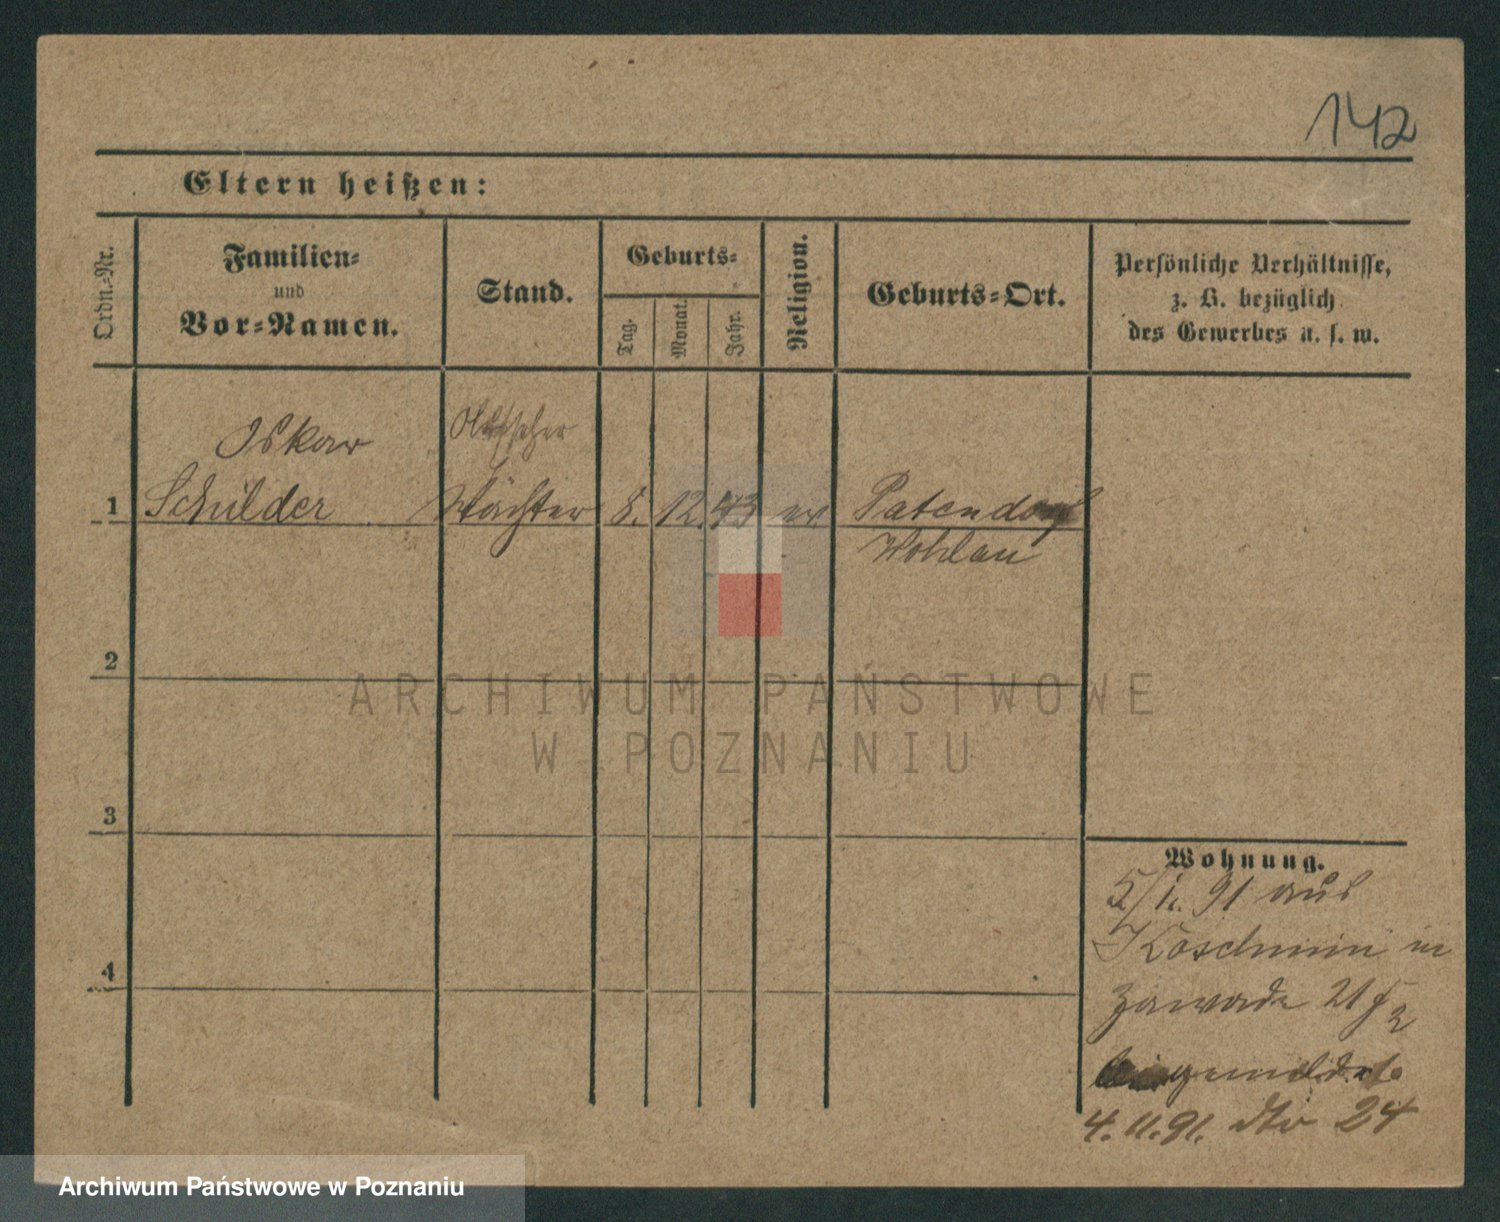 142
Eltern heißen:
Ordn.-Nr.
Familien-
und
Vor-Namen.
Stand.
Geburts-
Tag.
Monat.
Jahr.
Religion.
Geburts-Ort.
Persönliche Verhältnisse,
z. B. bezüglich
des Gewerbes u. s. w.
Oskar
1 Schilder Wächter 8. 12. 43 ev Patendorf
Wohlau
2
3
4
Wohnung.
5/1. 91 aus
Koschmin in
Zawade 21 f 2
gemeldet
4. 11. 91. dto 24
ARCHIWUM PAŃSTWOWE
W POZNANIU
Archiwum Państwowe w Poznaniu